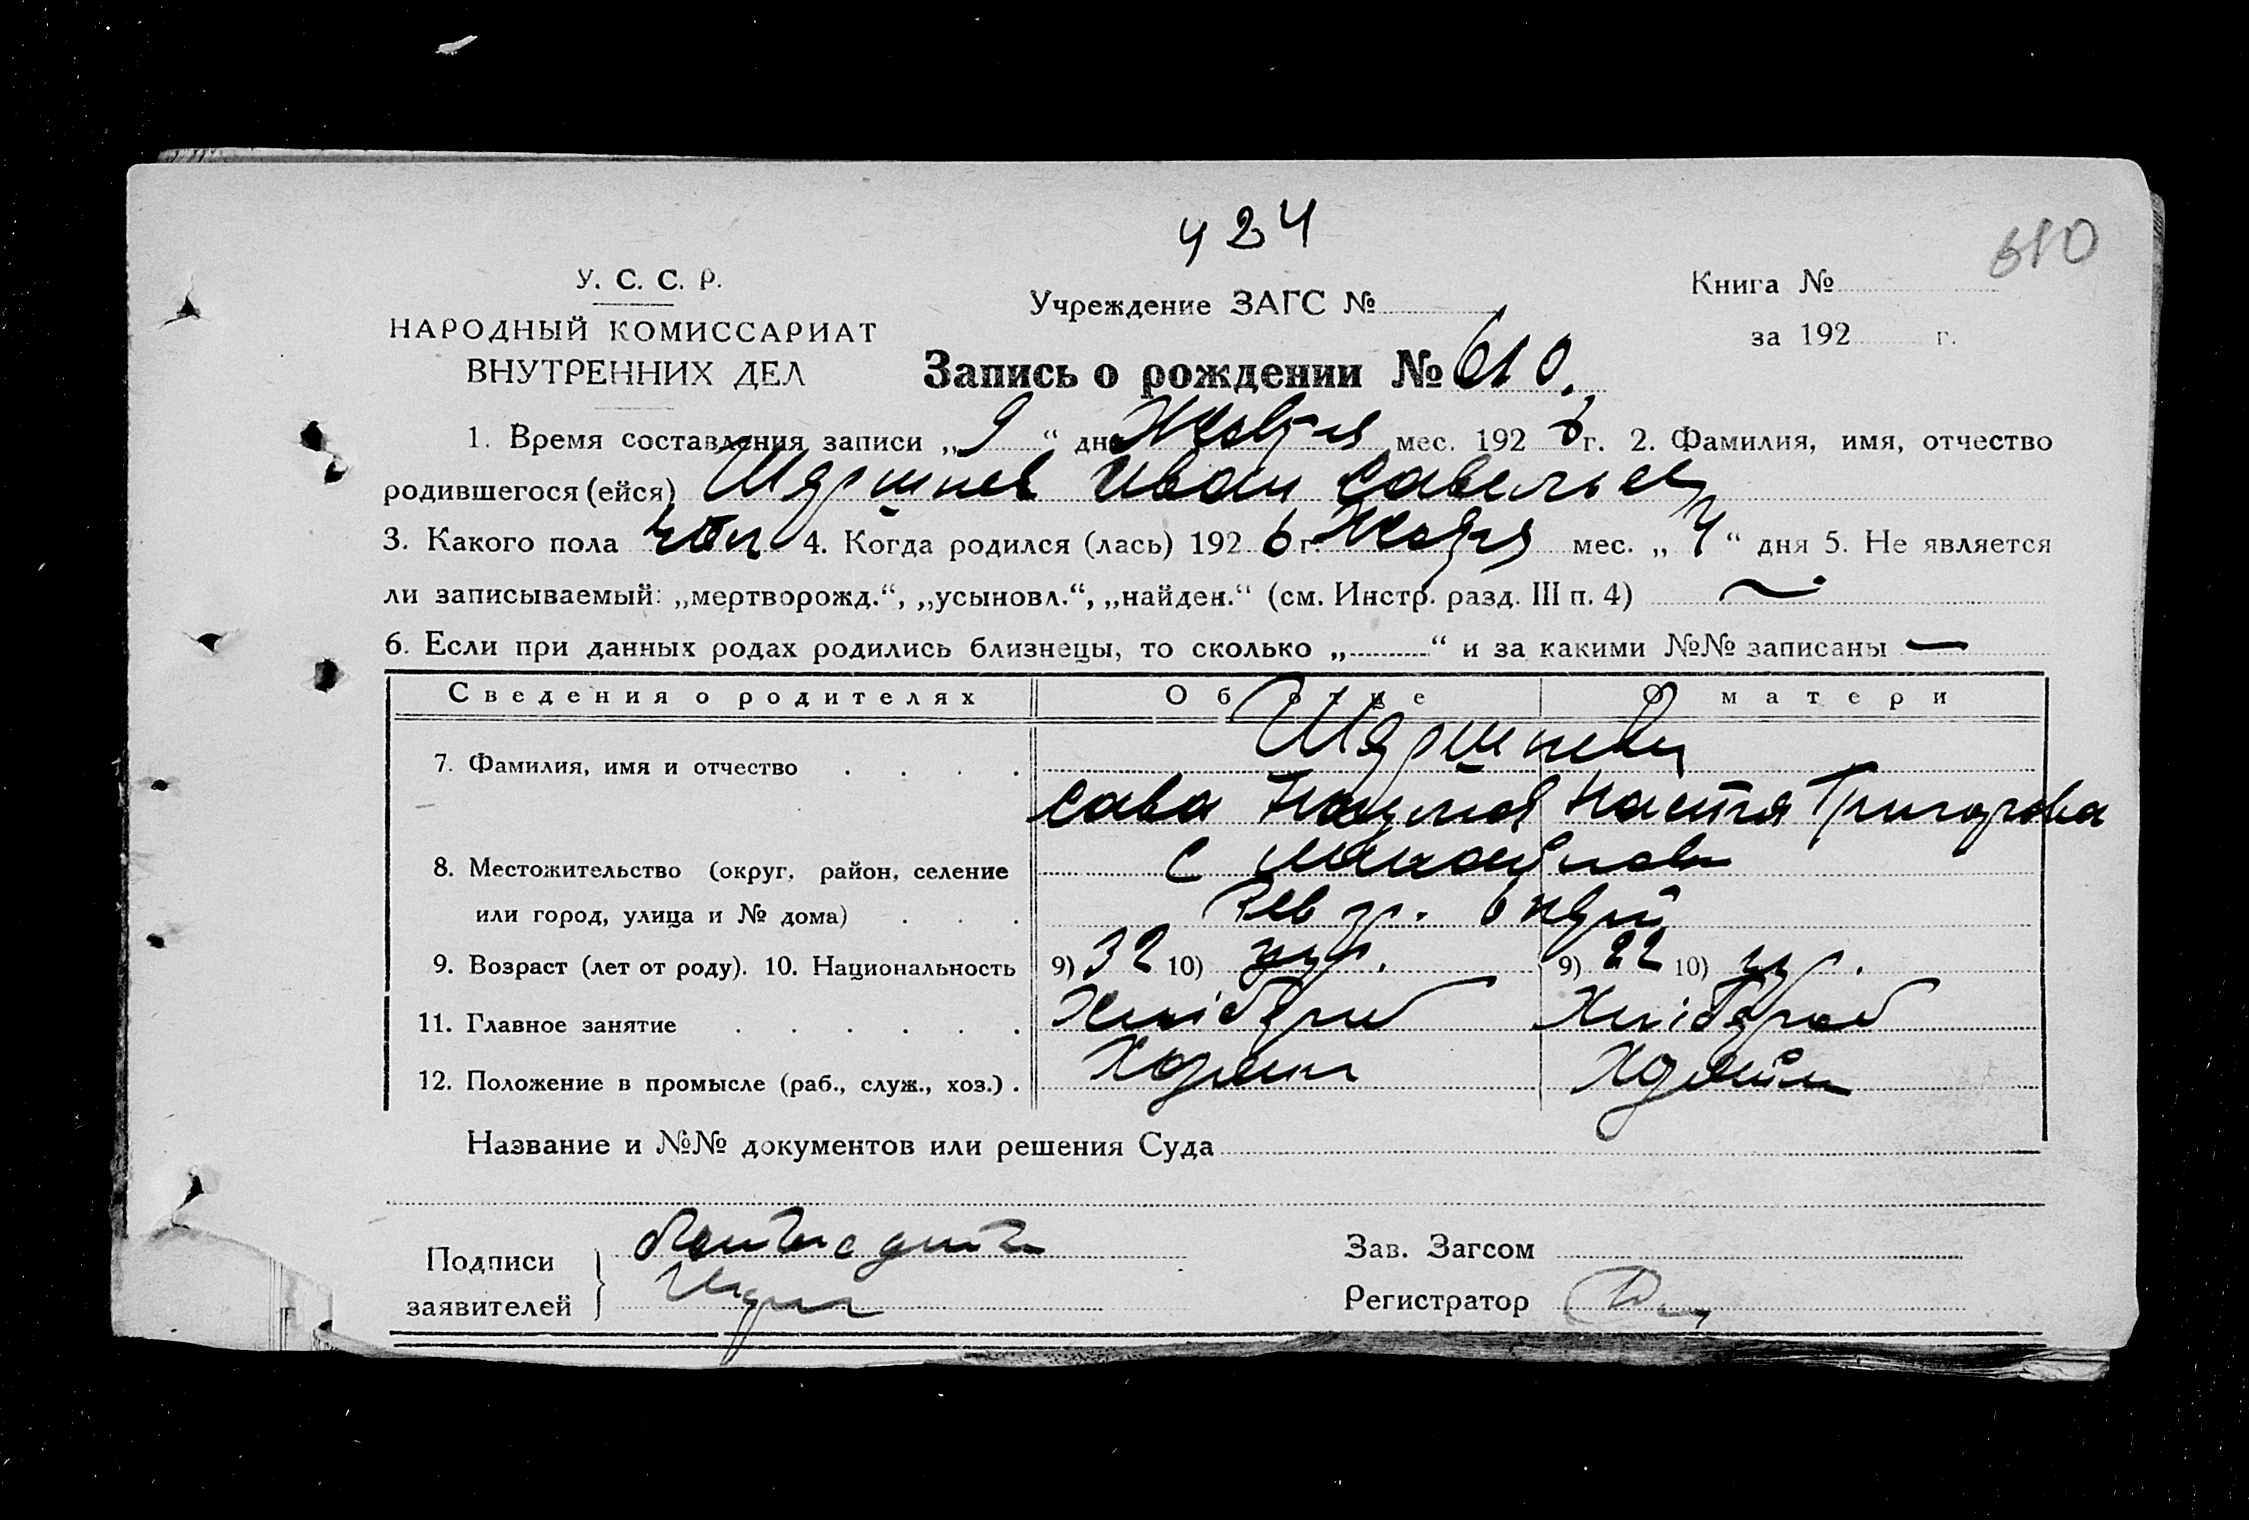 424
610
У. С. С. Р.
НАРОДНЫЙ КОМИССАРИАТ
ВНУТРЕННИХ ДЕЛ
Учреждение ЗАГС №
Книга №
за 192 г.
Запись о рождении № 610.
1. Время составления записи „9“ дня мес. 1926 г. 2. Фамилия, имя, отчество
родившегося (ейся) Иван Савельев
3. Какого пола чол 4. Когда родился (лась) 1926 г. мес. „4“ дня 5. Не является
ли записываемый: „мертворожд.“, „усыновл.“, „найден.“ (см. Инстр. разд. III п. 4) —
6. Если при данных родах родились близнецы, то сколько „ “ и за какими №№ записаны —
Сведения о родителях Об отце О матери
7. Фамилия, имя и отчество
Сава Наумов Настя Григорова
8. Местожительство (округ, район, селение с
или город, улица и № дома)
9. Возраст (лет от роду). 10. Национальность 9) 32 10) укр. 9) 22 10) укр.
11. Главное занятие Хлібороб Хлібороб
12. Положение в промысле (раб., служ., хоз.)
Название и №№ документов или решения Суда
Подписи
заявителей
Зав. Загсом
Регистратор